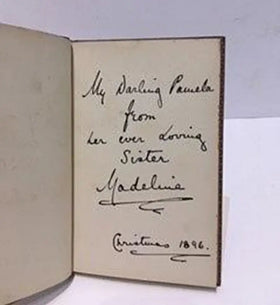 My Darling Pamela
from
her ever loving
Sister
Madeline
Christmas 1896.